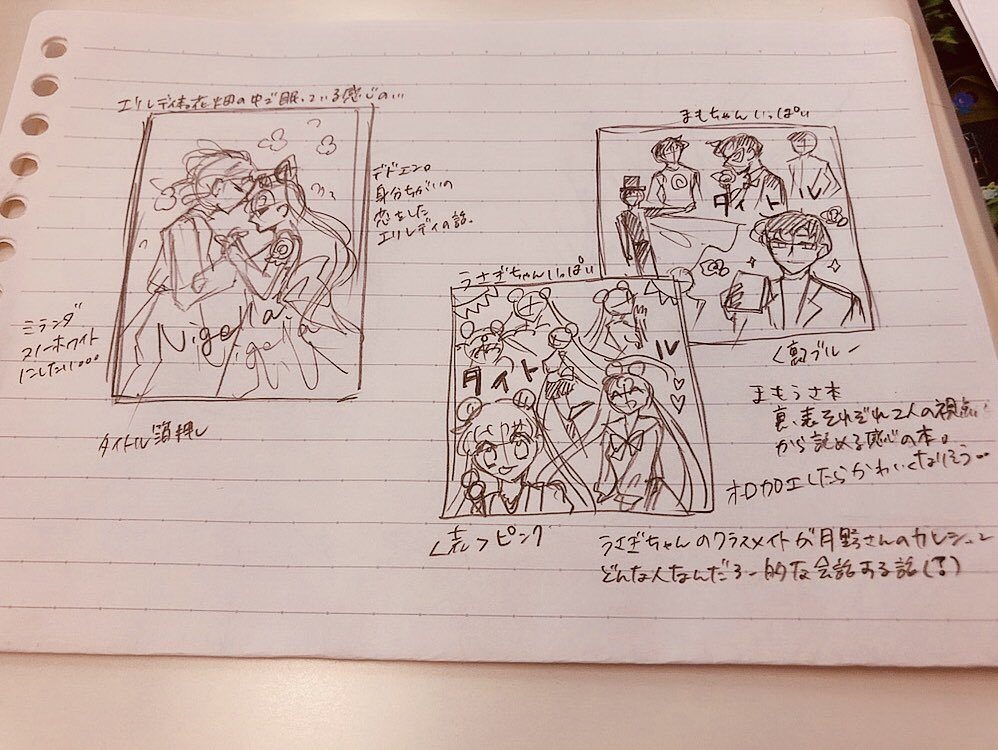 エリレディお花畑の中で眠っている感じの…
デドエン。
身分ちがいの
恋をした
エリレディの話。
ミランダ
スノーホワイト
にしたい。。。
Nigella
タイトル箔押し
まもちゃんいっぱい
タイト
ル
<裏>ブルー
うさぎちゃんいっぱい
タイト
ル
<表>ピンク
まもうさ本
裏、表それぞれ2人の視点
から読める感じの本。
ホロ加工したらかわいくなりそう。
うさぎちゃんのクラスメイトが月野さんのカレシって
どんな人なんだろー的な会話する話(?)